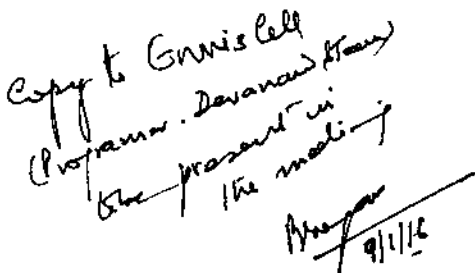 Copy to Ennis Cell
(Programr. Devanand
present in
the meeting
9/1/16